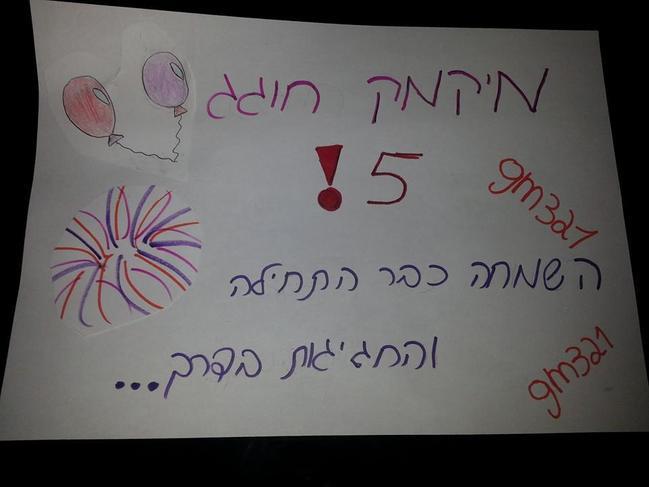 מיקמק חוגג
5!
gm321
השמחה כבר התחילה
והחגיגות בדרך...
gm321